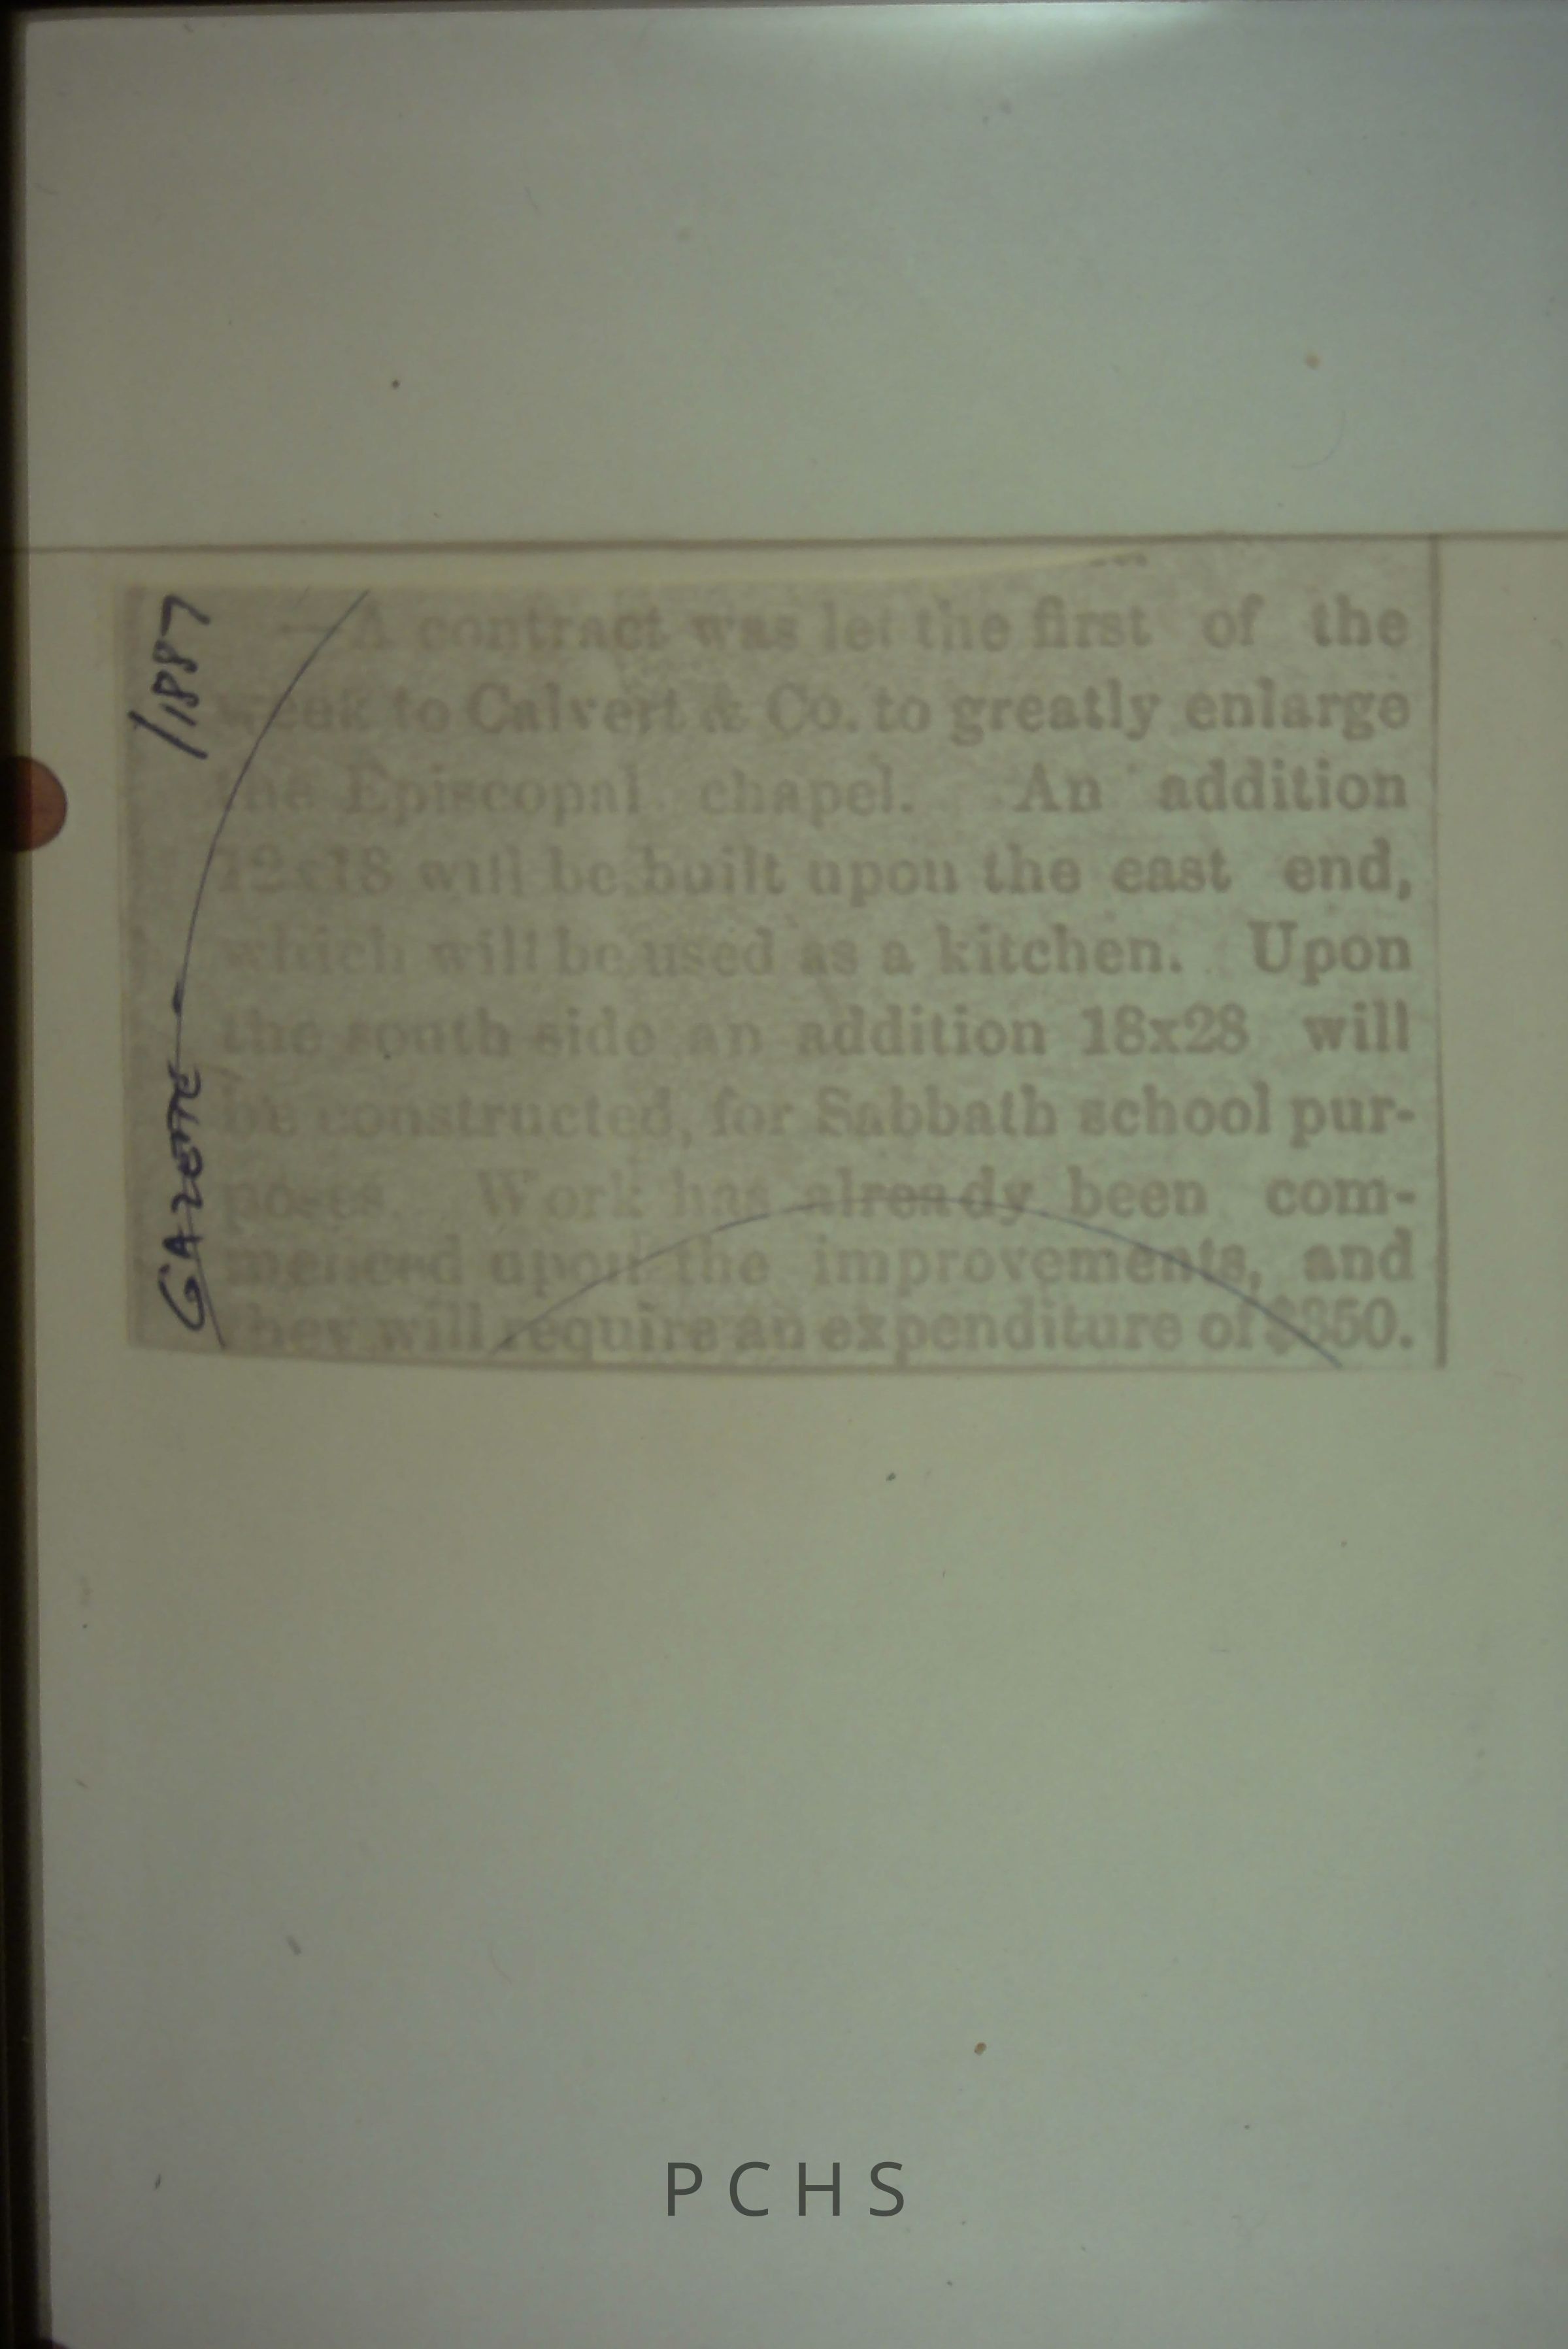 GAZETTE — /1887
—A contract was let the first of the
week to Calvert & Co. to greatly enlarge
the Episcopal chapel. An addition
12x18 will be built upon the east end,
which will be used as a kitchen. Upon
the south side an addition 18x28 will
be constructed, for Sabbath school pur-
poses. Work has already been com-
menced upon the improvements, and
they will require an expenditure of
PCHS